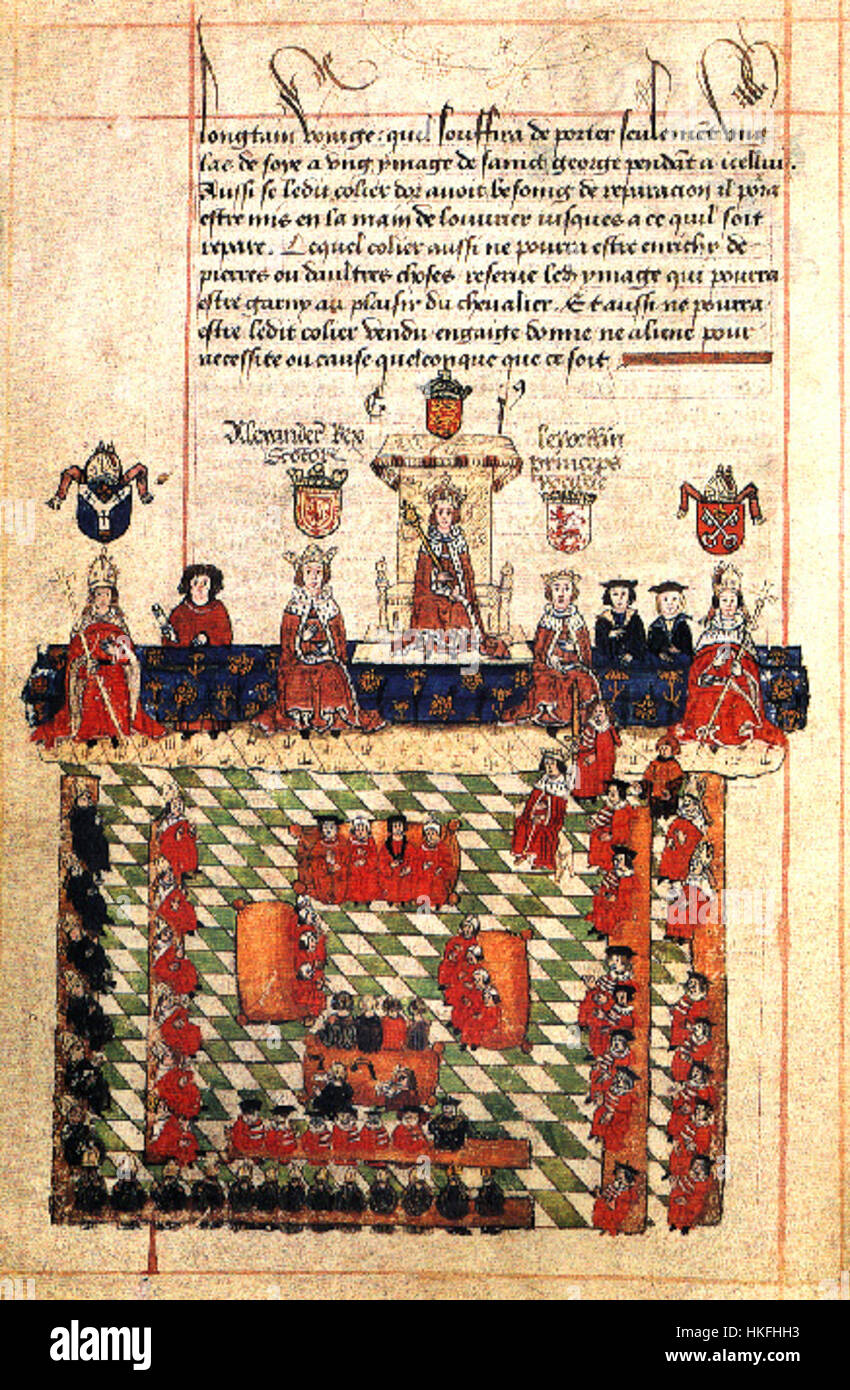 longtain voiage: quil souffira de porter seulement ung
lac de soye a ung ymage de sainct george pendant a icellui.
Aussi se ledit colier dor avoit besoing de reparacion il pora
estre mis en la main de louvrier jusques a ce quil soit
repare. Lequel colier aussi ne pourra estre enrichy de
pierres ou daultres choses reserve led ymage qui pourra
estre garny au plaisir du chevalier. Et aussi ne pourra
estre ledit colier vendu engaige donne ne aliene pour
necessite ou cause quelconque que ce soit
Alexander Rex
Scotor
princeps
alamy
Image ID: HKFHH3
www.alamy.com